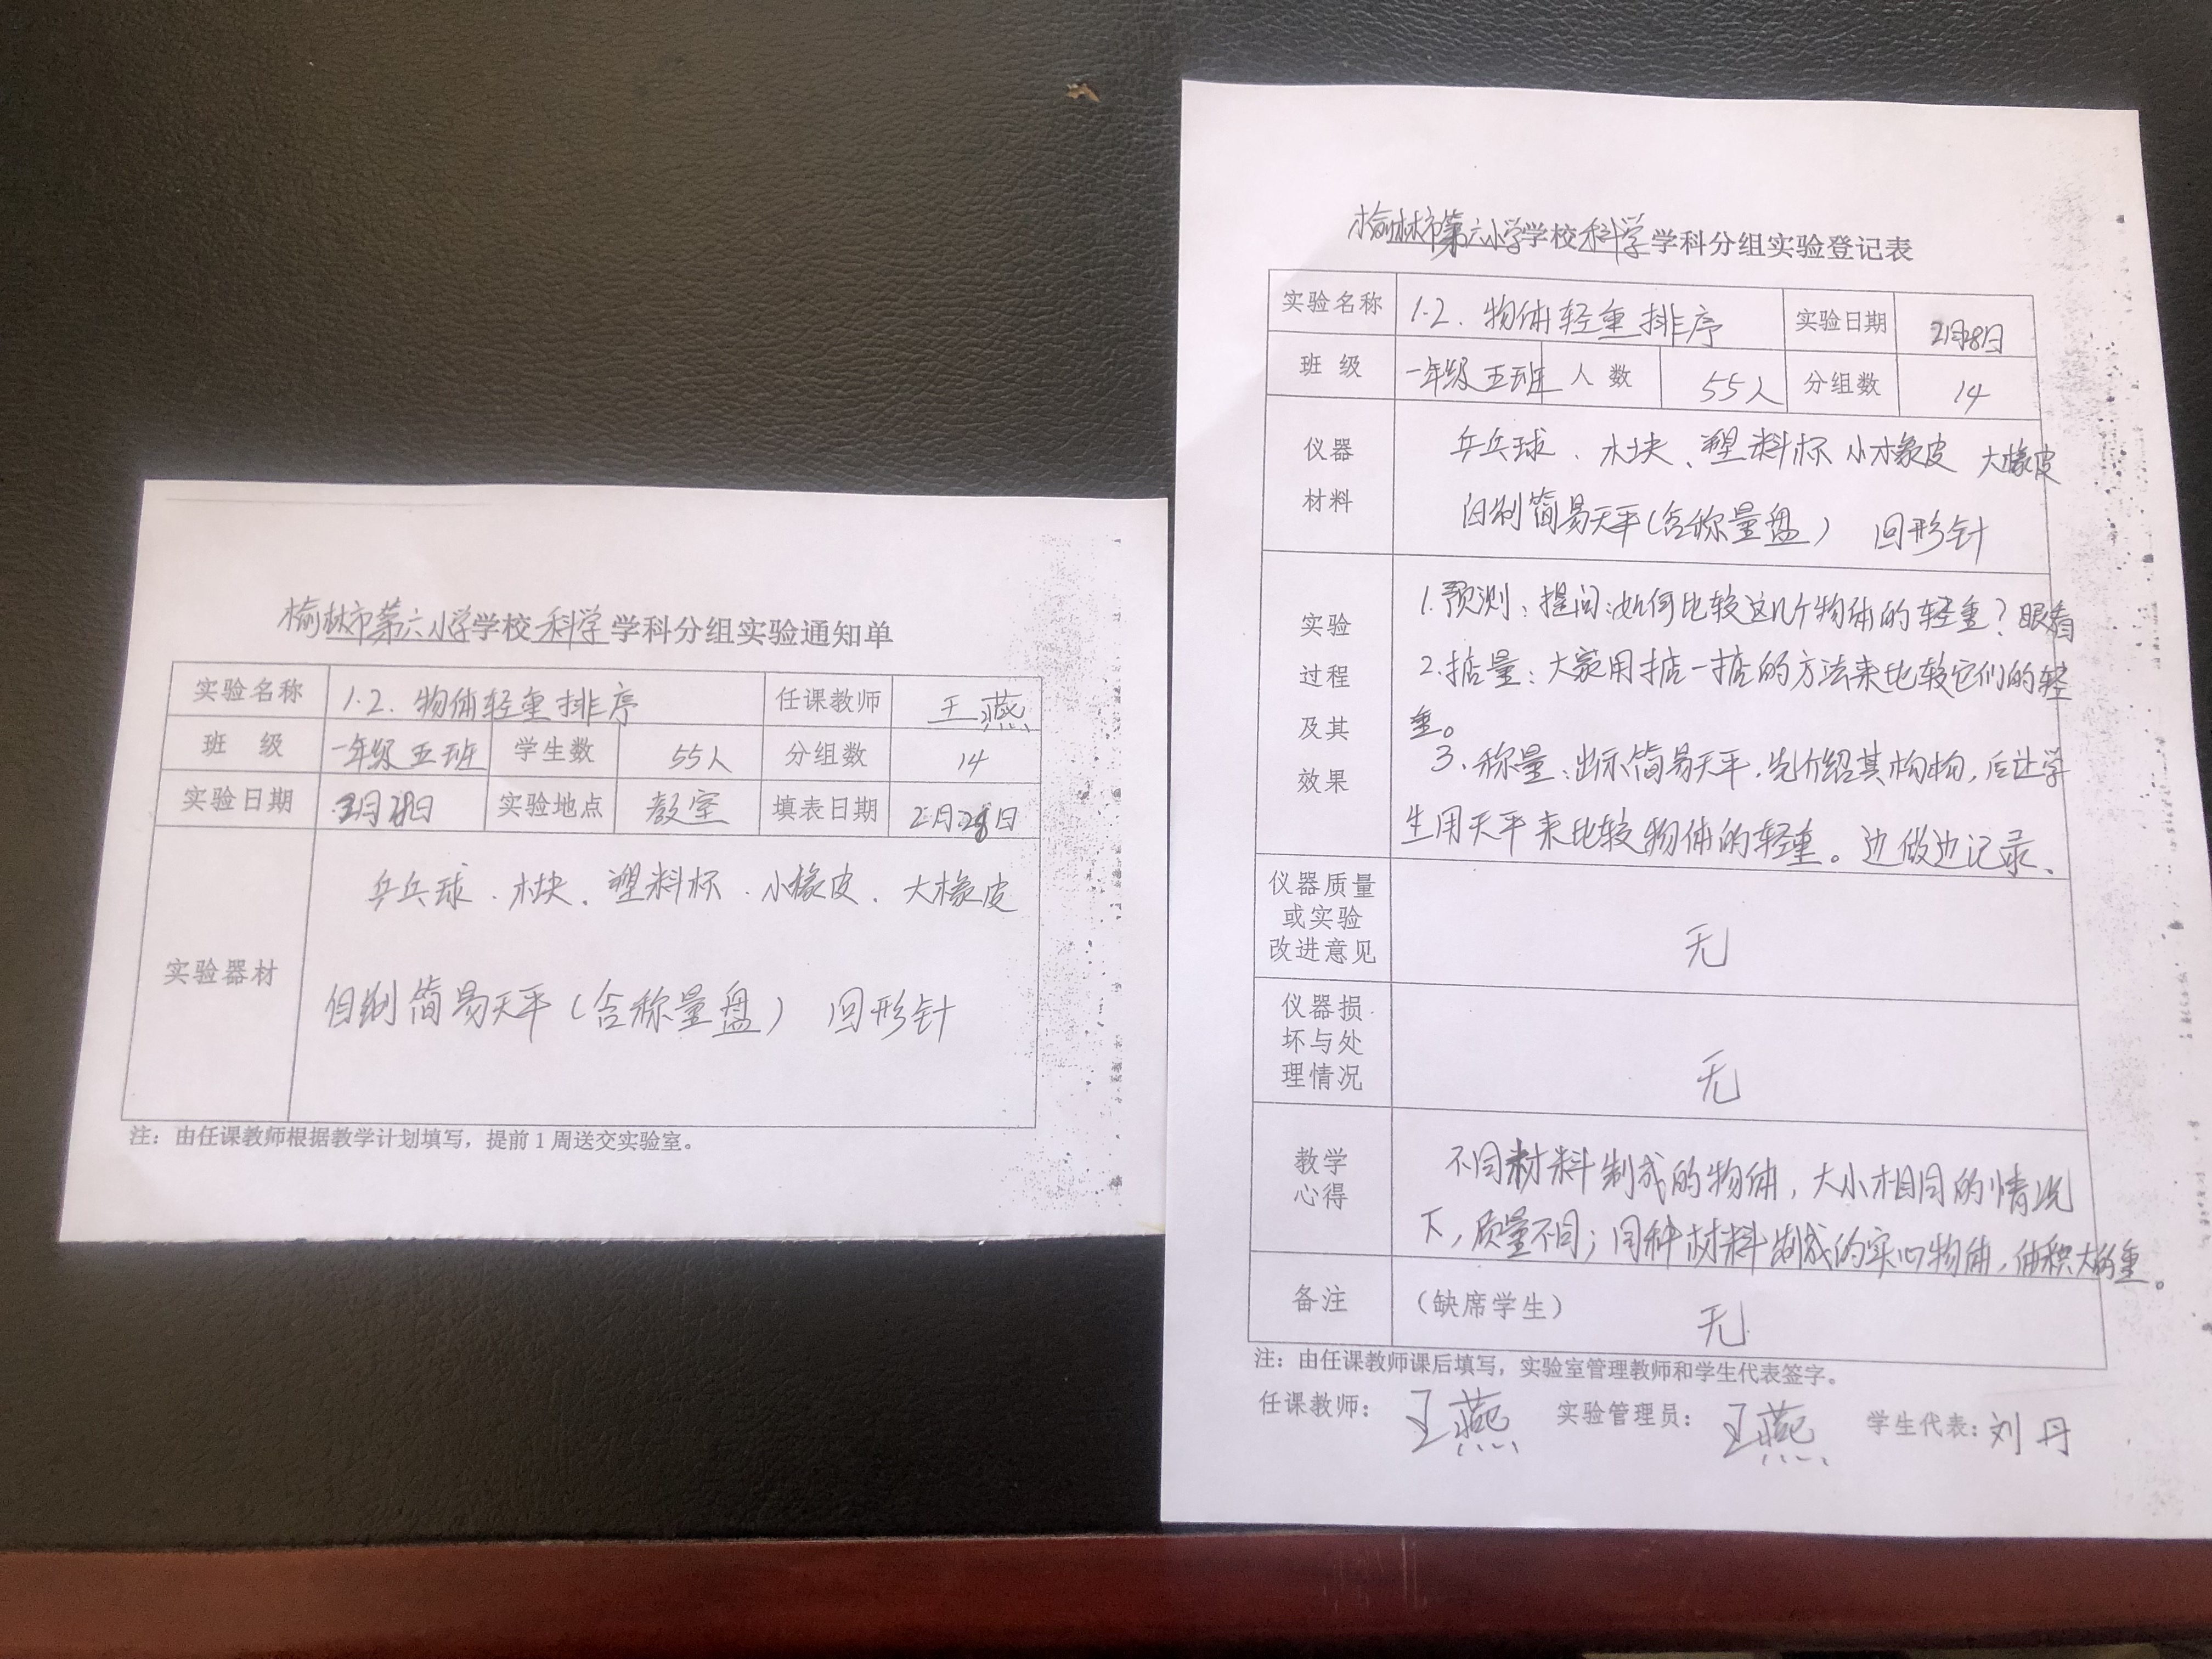 榆林市第六小学学校科学学科分组实验通知单
实验名称 1.2.物体轻重排序 任课教师 王燕
班 级 一年级五班 学生数 55人 分组数 14
实验日期 实验地点 教室 填表日期 2月28日
乒乓球、木块、塑料杯、小橡皮、大橡皮
实验器材
自制简易天平(含称量盘) 回形针
注：由任课教师根据教学计划填写，提前1周送交实验室。
榆林市第六小学学校科学学科分组实验登记表
实验名称 1.2.物体轻重排序 实验日期 2月28日
班 级 一年级五班 人 数 55人 分组数 14
仪器 乒乓球、木块、塑料杯 小橡皮 大橡皮
材料 自制简易天平(含称量盘) 回形针
实验 1.预测：提问：如何比较这几个物体的轻重？眼看
过程 2.掂量：大家用掂一掂的方法来比较它们的轻
及其 重。
效果 3、称量：出示简易天平，先介绍其构构，后让学
生用天平来比较物体的轻重。边做边记录、
仪器质量
或实验
改进意见 无
仪器损
坏与处
理情况 无
教学 不同材料制成的物体，大小相同的情况
心得 下，质量不同；同种材料制成的实心物体，体积大的重。
备注 （缺席学生） 无
注：由任课教师课后填写，实验室管理教师和学生代表签字。
任课教师：王燕 实验管理员：王燕 学生代表：刘丹